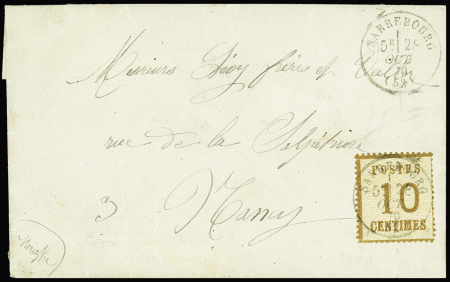 SARREBOURG
5E 28
OCT.
70
(52)
Messieurs Lévy frères et
rue de la Salpétrière
3 Nancy
POSTES
10
CENTIMES